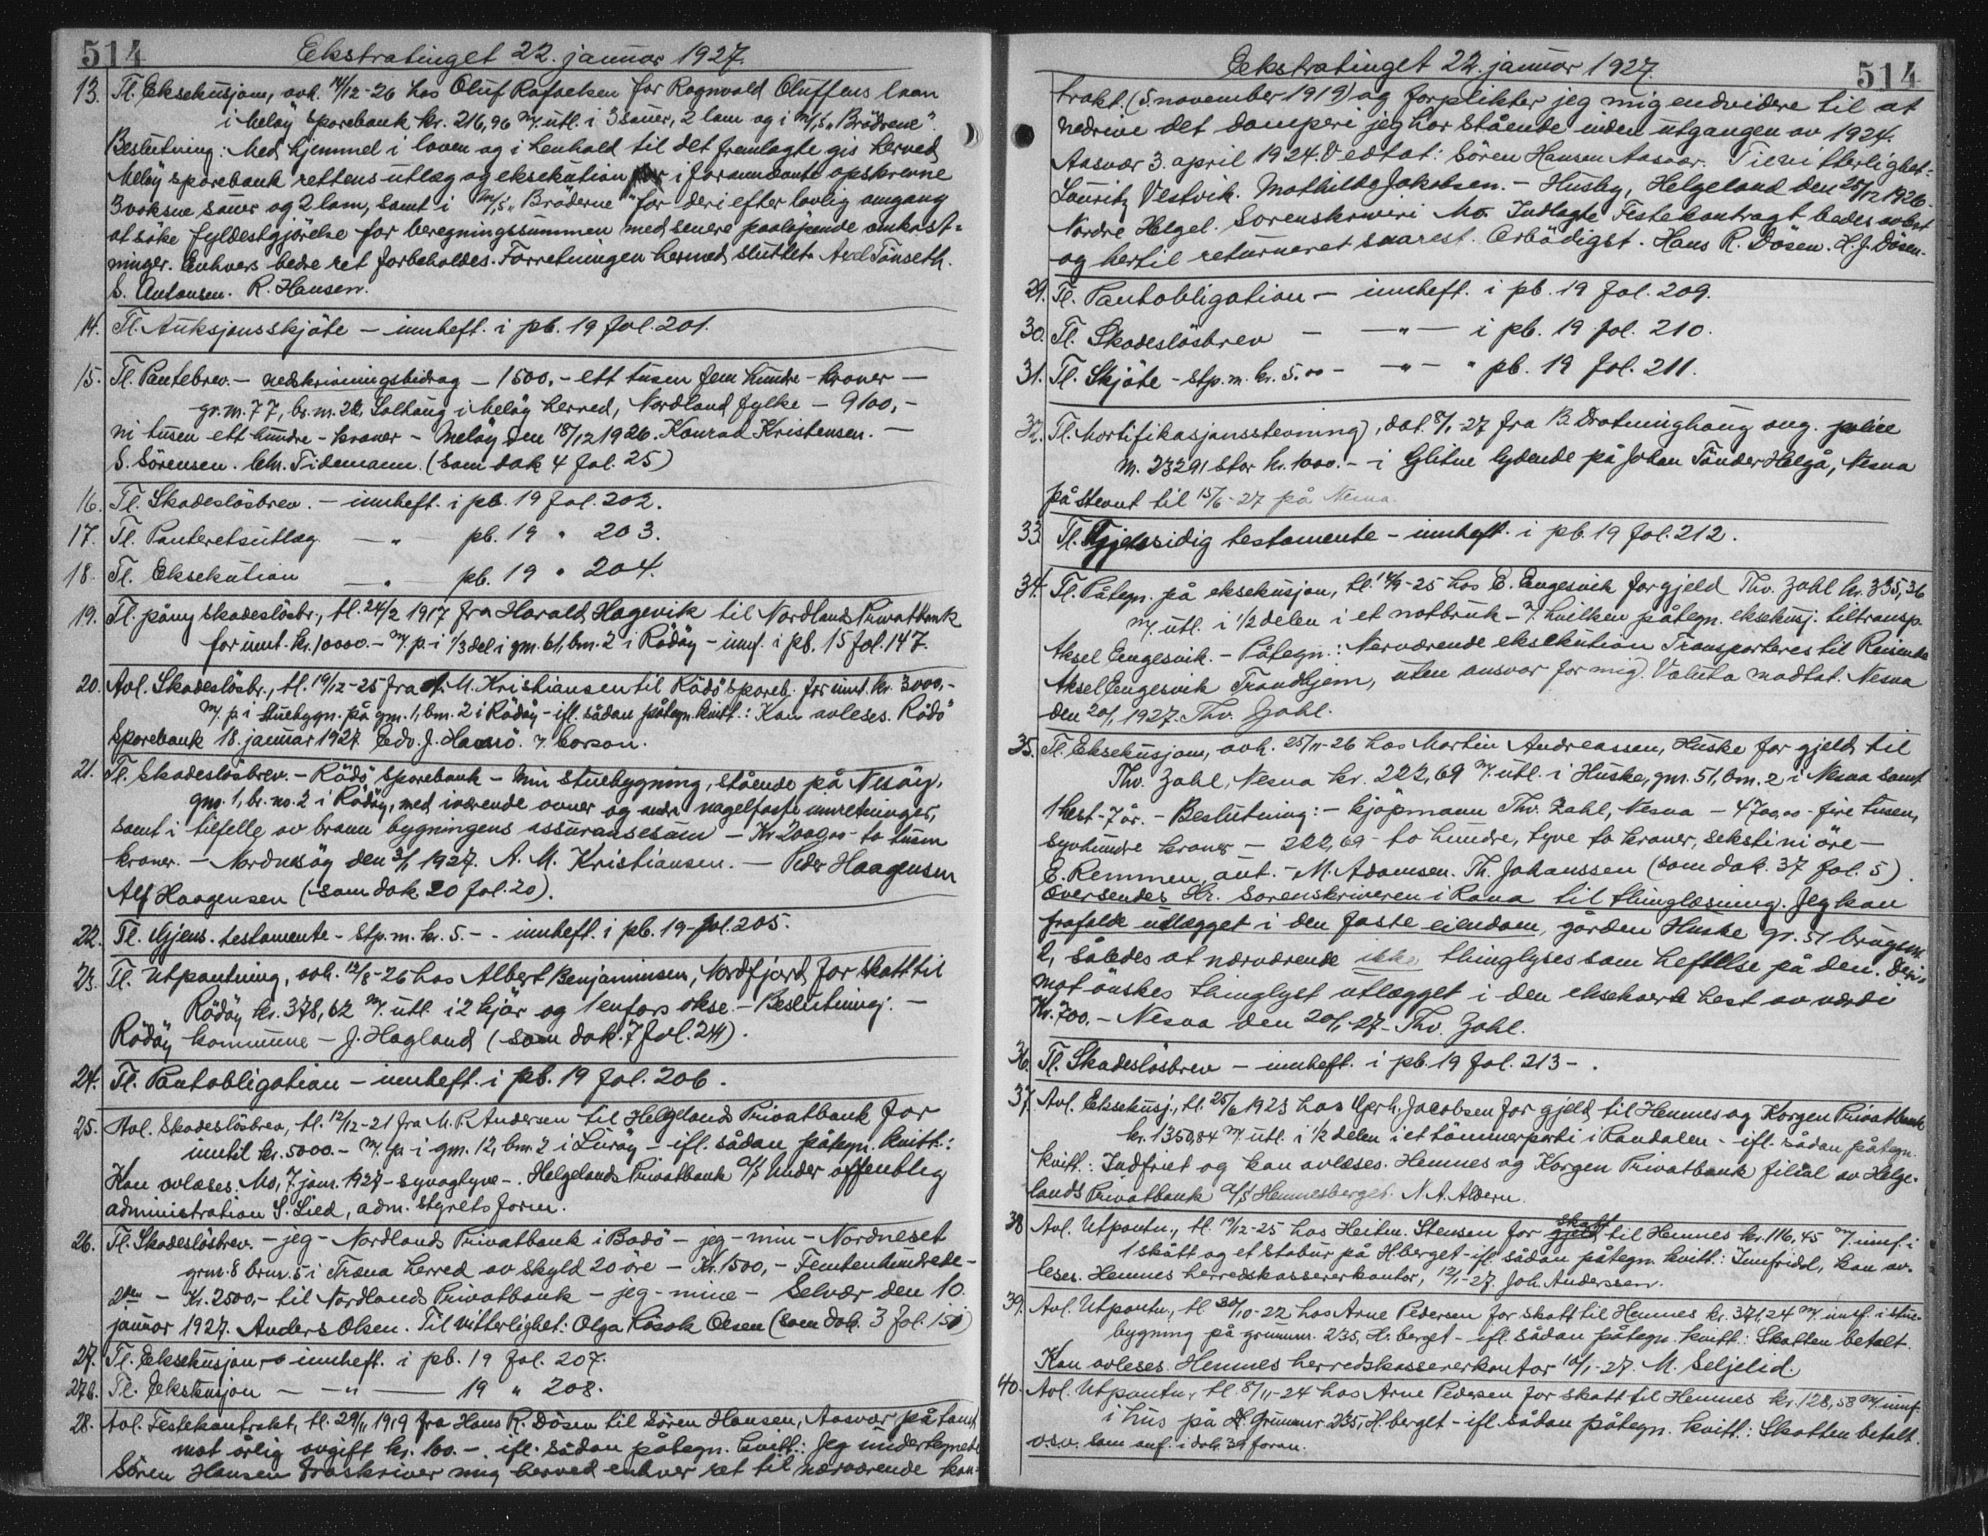 514
Ekstratinget 22. januar 1927.
13. Tl. Eksekusjon, avh. 14/12-26 hos Oluf Rafaelsen for Ragnvald Oluffens laan
i Meløy Sparebank kr. 216,96 m/utl. i 3 sauer, 2 lam og i M/S. "Brödrene".
Beslutning: Med hjemmel i loven og i henhold til det fremlagte gis herved
Meløy sparebank rettens utlæg og eksekution i foranævnte opskrevne
3 voksne sauer og 2 lam, samt i M/S. "Bröderne" for deri efter lovlig omgang
at söke fyldestgjörelse for beregningssummen med senere paaløpende omkost-
ninger. Enhvers bedre ret forbeholdes. Forretningen hermed sluttet. Axel Tönseth.
S. Antonsen. R. Hansen.
14. Tl. Auksjonsskjöte - innheft. i pb. 19 fol. 201.
15. Tl. Pantebrev - nedskrivningsbidrag - 1500,- ett tusen fem hundre - kroner -
gr.m. 77, br.m. 22, Solhaug i Meløy herred, Nordland fylke - 9100,-
ni tusen ett hundre - kroner - Meløy den 18/12 1926. Konrad Kristensen. -
S. Sörensen. Chr. Tidemann. (som dok 4 fol. 25)
16. Tl. Skadeslösbrev. - innheft. i pb. 19 fol. 202.
17. Tl. Panteretsutlæg - " - pb. 19 " 203.
18. Tl. Eksekution - " - pb. 19 " 204.
19. Tl. påny skadeslösbr., tl. 24/2 1917 fra Harald Hagevik til Nordlands Privatbank
for innt. kr. 10000.- m/p. i 1/3 del i gm. 61, bm. 2 i Rödöy - innf. i pb. 15 fol. 147.
20. Avl. Skadeslösbr., tl. 19/12-25 fra A. M. Kristiansen til Rödö spareb. for innt. kr. 3000,-
m/p. i stuebygn. på gm. 1, bm. 2 i Rödöy - ifl. sådan påtegn. kvitt.: Kan avleses. Rödö
Sparebank 18. januar 1927. Edv. J. Hamnö.
21. Tl. Skadeslösbrev. - Rödö Sparebank - Min stuebygning, stående på Nesöy,
gno. 1, br. no. 2 i Rödöy, med iværende ovner og andre nagelfaste innretninger,
samt i tilfelle av brann bygningens assuransesum - Kr. 2000,00 - to tusen
kroner. - Nordnesöy den 3/1 1927. A. M. Kristiansen. - Peder Haagensen
Alf Haagensen (som dok. 20 fol. 20).
22. Tl. Gjens. testamente - Stp.m. kr. 5.- - innheft. i pb. 19 fol. 205.
23. Tl. Utpantning, avh. 12/8-26 hos Albert Benjaminsen, Nordfjord, for skatt til
Rödöy kr. 378,62 m/utl. i 2 kjör og 1 enfors okse - Beslutning: -
Rödöy kommune - J. Hagland (som dok. 7 fol. 241).
24. Tl. Pantobligation - innheft. i pb. 19 fol. 206.
25. Avl. Skadeslösbrev, tl. 12/12-21 fra M. P. Andersen til Helgelands Privatbank for
inntil kr. 5000.- m/p. i gm. 12, bm. 2 i Luröy - ifl. sådan påtegn. kvitt.:
Kan avlæses. Mo, 7 janr. 1927 - syvogtyve -. Helgelands Privatbank A/S Under offentlig
administration S. Lied, adm. styrets form.
26. Tl. Skadeslösbrev. - jeg - Nordlands Privatbank i Bodö - jeg - min - Nordneset
grnr. 8 brnr. 5 i Træna herred av skyld 20 öre - Kr. 1500,- Femtenhundrede -
2den - Kr. 2500,- til Nordlands Privatbank - jeg - mine - Selvær den 10.
januar 1927. Anders Olsen. Til vitterlighet: Olga Olsen (som dok. 3 fol. 151)
27. Tl. Eksekusjon - innheft. i pb. 19 fol. 207.
27b. Tl. Eksekusjon - " - 19 " 208.
28. Avl. Festekontrakt, tl. 29/11 1919 fra Hans R. Dösen til Sören Hansen, Aasvær, på tomt
mot årlig avgift kr. 100.- ifl. sådan påtegn. kvitt.: Jeg undertegnede
Sören Hansen fraskriver mig herved enhver ret til nærværende kon-
514
Ekstratinget 22. januar 1927.
trakt. (5. november 1919) og forplikter jeg mig endvidere til at
nedrive det damperi jeg har stående inden utgangen av 1924.
Aasvær 3. april 1924. Vedtat: Sören Hansen Aasvær. Til vitterlighet:
Lauritz Vestvik. Mathilde Jakobsen. - Husby, Helgeland den 28/12 1926.
Nordre Helgel. Sorenskriveri Mo. Indlagte Festekontragt bedes avlest
og hertil returneret snarest. Ærbödigst. Hans R. Dösen. H. J. Dösen.
29. Tl. Pantobligation - innheft. i pb. 19 fol. 209.
30. Tl. Skadeslösbrev - - " - i pb. 19 fol. 210.
31. Tl. Skjöte - Stp.m. kr. 5.00 - - " - " pb. 19 fol. 211.
32. Tl. Mortifikasjonsstevning, dat. 8/1-27 fra B. Dronninghaug ang. police
nr. 23291 stor kr. 1000.- i Glitne lydende på Johan Tönder Helgå, Nesna
påstevnt til 15/6-27 på Nesna.
33. Tl. Gjensidig testamente - innheft. i pb. 19 fol. 212.
34. Tl. Påtegn. på eksekusjon, tl. 14/9-25 hos E. Engesvik for gjeld Thv. Zahl kr. 335,36
m/utl. i 1/2 delen i et notbruk - v/ hvilken påtegn. eksekusj. tiltransp.
Aksel Engesvik. - Påtegn.: Nærværende eksekution Transporteres til Reisende
Aksel Engesvik Trondhjem, uten ansvar for mig. Valuta modtat. Nesna
den 20/1 1927. Thv. Zahl.
35. Tl. Eksekusjon, avh. 25/11-26 hos Martin Andreassen, Huske for gjeld til
Thv. Zahl, Nesna kr. 222,69 m/utl. i Huske, gnr. 51, bm. 2 i Nesna samt
1 hest - 7 år. - Beslutning: - kjöpmann Thv. Zahl, Nesna - 4700,00 - fire tusen,
syvhundre kroner - 222,69 - to hundre, tyve to kroner, sekstini öre -
E. Remmen, aut. - M. Adamsen. Th. Johanssen (som dok. 37 fol. 5).
Oversendes Hr. Sorenskriveren i Rana til thinglæsning. Jeg kan
frafalde utlægget i den faste eiendom, gården Huske gr. 51 brugsnr.
2, således at nærværende ikke thinglyses som heftelse på den. Deri-
mot önskes thinglyst utlægget i den eksekverte hest av værdi
Kr. 700.- Nesna den 20/1-27 - Thv. Zahl.
36. Tl. Skadeslösbrev - innheft. i pb. 19 fol. 213 - .
37. Avl. Eksekusj., tl. 25/6 1923 hos Jacobsen for gjeld til Hemnes og Korgen Privatbank
kr. 1350,84 m/utl. i 1/2 delen i et tömmerparti i Randalen - ifl. sådan påtegn.
kvitt.: Indfriet og kan avlæses. Hemnes og Korgen Privatbank filial av Helge-
lands Privatbank A/S Hemnesberget. N. A. Aldern.
38. Avl. Utpantn., tl. 19/12-25 hos Heitm. Stensen for skatt til Hemnes kr. 116,45 m/innf. i
1 skått og et stabur på H.berget - ifl. sådan påtegn. kvitt.: Innfridd, kan av-
leses. Hemnes herredskassererkontor, 12/1-27. Joh. Anderssen.
39. Avl. Utpantn., tl. 30/10-22 hos Arne Pedersen for skatt til Hemnes kr. 371,24 m/innf. i stue-
bygning på grunnnr. 235, H.berget - ifl. sådan påtegn. kvitt.: Skatten betalt.
Kan avleses. Hemnes herredskassererkontor 12/1-27. M. Seljelid.
40. Avl. Utpantn., tl. 8/11-24 hos Arne Pedersen for skatt til Hemnes kr. 128,58 m/innf.
i hus på Grunnnr 235, H.berget - ifl. sådan påtegn. kvitt.: Skatten betalt.
o.s.v. som anf. i dok. 39 foran.